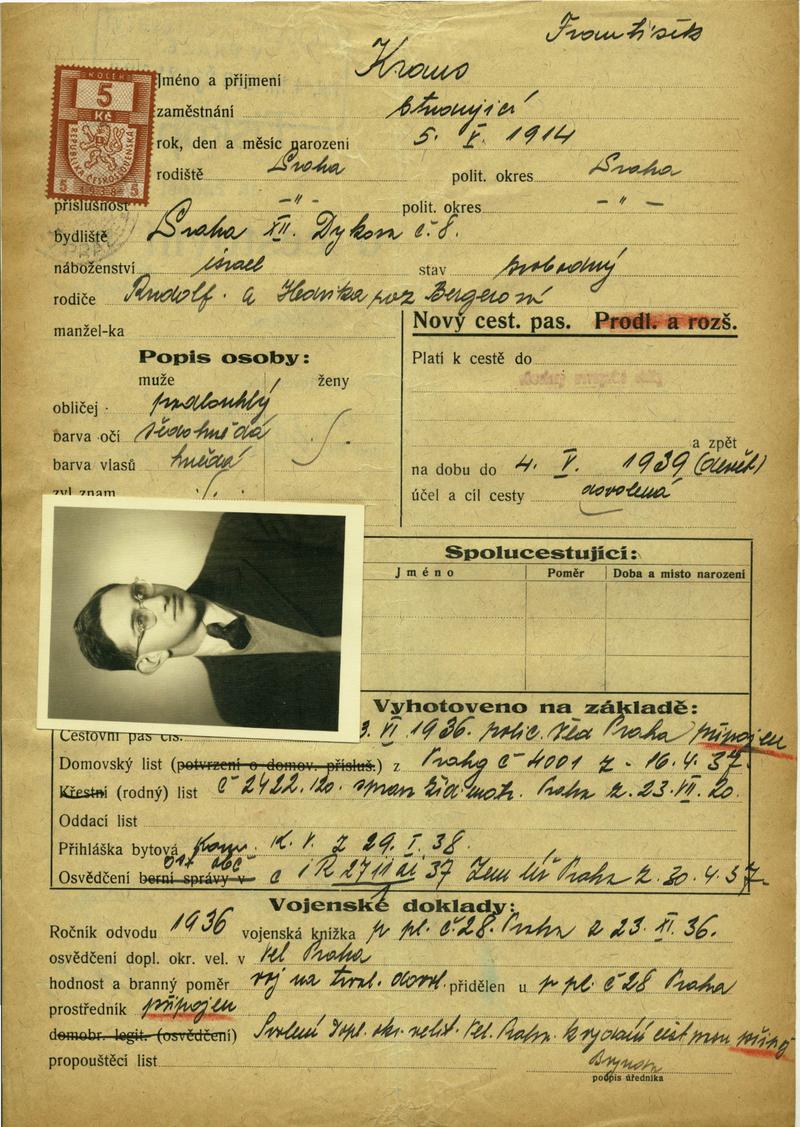 František
Jméno a příjmení Kraus
KOLEK
5
Kč
REPUBLIKA ČESKOSLOVENSKÁ
5 1938 5
zaměstnání studující
rok, den a měsíc narození 5. V. 1914
rodiště Praha polit. okres Praha
příslušnost -"- polit. okres -"-
bydliště Praha XII. Dykova č. 8.
náboženství israel stav svobodný
rodiče Rudolf a Hedvika roz Bergerová
manžel-ka
Nový cest. pas. Prodl. a rozš.
Popis osoby:
muže ženy
obličej podlouhlý
barva očí šedohnědá
barva vlasů hnědá
zvl znam
Platí k cestě do
a zpět
na dobu do 4. V. 1939 (devět)
účel a cíl cesty dovolená
Spolucestující:
Jméno Poměr Doba a místo narození
Vyhotoveno na základě:
Cestovní pas čís. 3. VI 1936. polic. řed Praha připojen
Domovský list (potvrzení o domov. přísluš.) z Prahy č 4001 z - 16. 4. 37.
Křestní (rodný) list č 2422.120. správ žid matr. Praha z. 23. VII. 20.
Oddací list
Přihláška bytová Kom. K. V. z 29. I. 38.
Osvědčení berní správy v obč č 37 Zem úř Praha z. 30. 4. 37
Vojenské doklady:
Ročník odvodu 1936 vojenská knížka p pl. č. 28. Praha z 23. XI. 36.
osvědčení dopl. okr. vel. v Vel Praha
hodnost a branný poměr voj na trval. dovol. přidělen u p pl. č 28 Praha
prostředník připojen
domobr. legit. (osvědčení) Svolení dopl. okr. velit. Vel. Praha k vydání cest pasu připoj
propouštěcí list
podpis úředníka